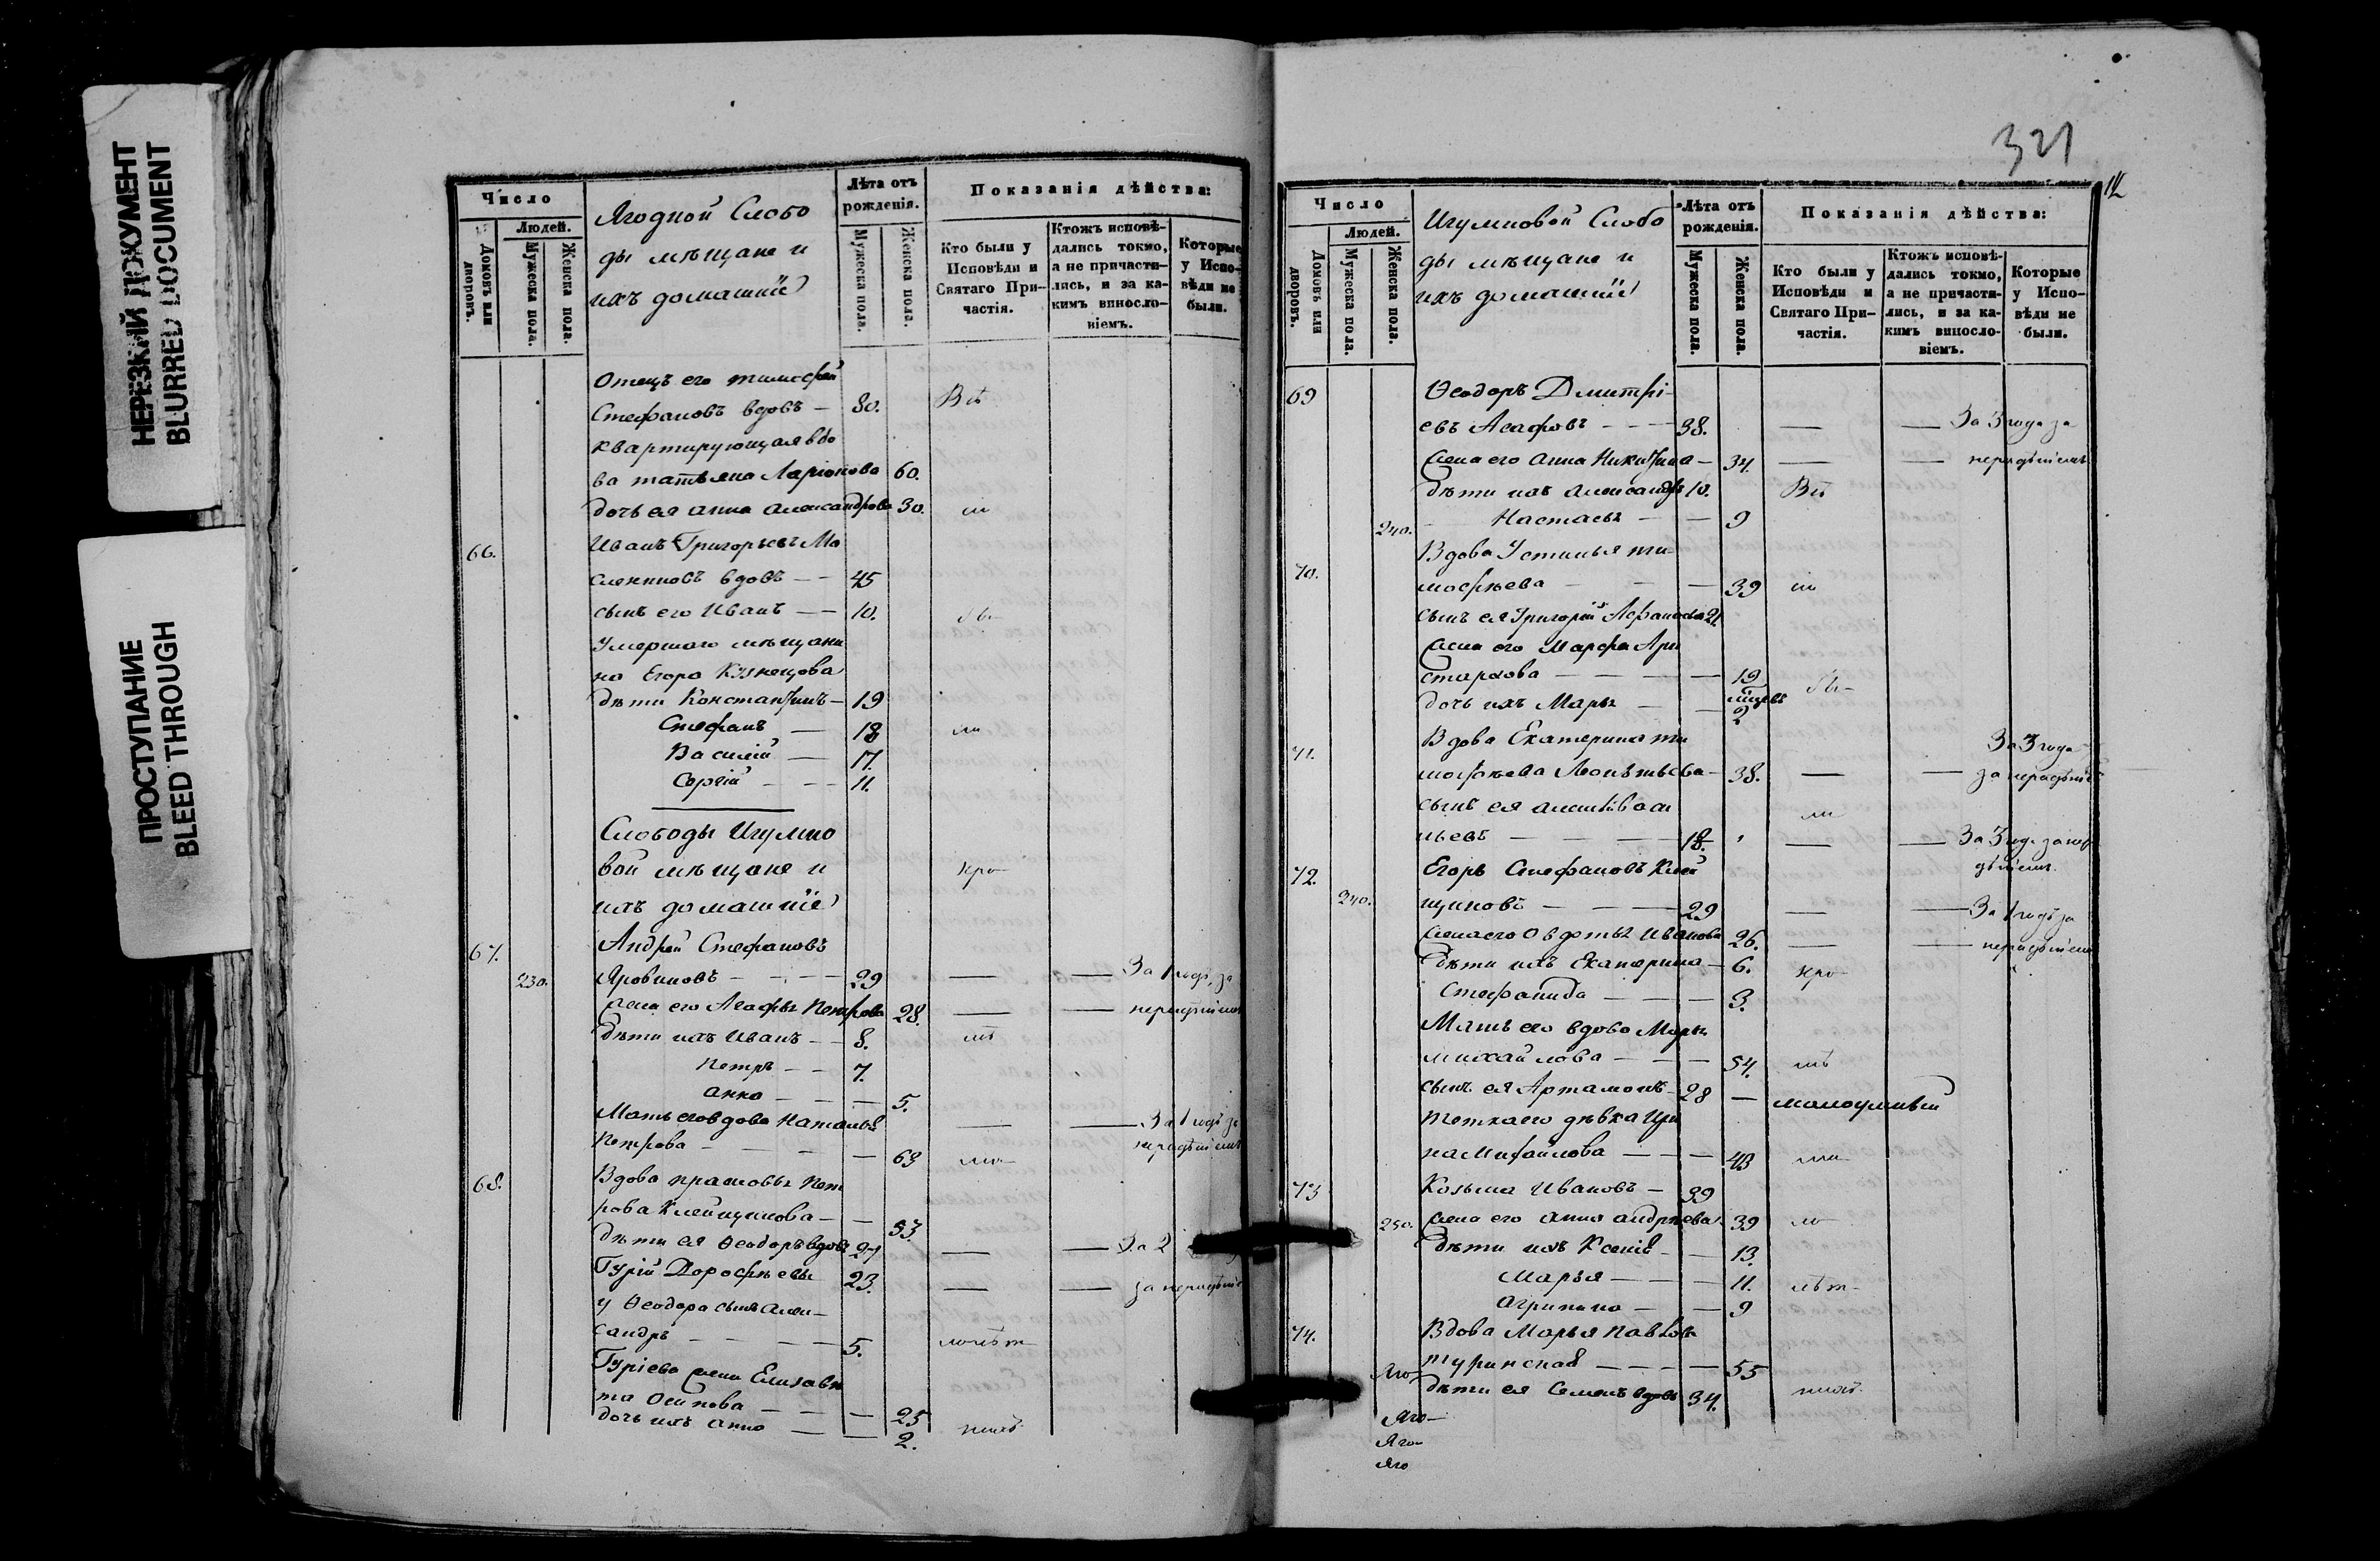 НЕРЕЗКИЙ ДОКУМЕНТ
BLURRED DOCUMENT
ПРОСТУПАНИЕ
BLEED THROUGH
Число
Людей.
Домовъ или дворовъ.
Мужеска пола.
Женска пола.
Ягодной Слобо
ды мѣщане и
ихъ домашніе
Лѣта отъ рожденія.
Мужеска пола.
Женска пола.
Показанія дѣйства:
Кто были у Исповѣди и Святаго Причастія.
Ктожъ исповѣдались токмо, а не причастились, и за какимъ винословіемъ.
Которые у Исповѣди не были.
Отецъ его тимофей
Стефановъ вдовъ — 80.
квартирующая вдо
ва татьяна Ларіонова 60.
дочь ея анна александрова 30.
66. Иванъ Григорьевъ Ма
сленниковъ вдовъ — 45
сынъ его Иванъ — 10.
Умершаго мѣщани
на Егора Кузнецова
дѣти Константинъ — 19
Стефанъ — 18
Василій — 17.
Сергій — 11.
Слободы Игумно
вой мѣщане и
ихъ домашніе
67. Андрей Стефановъ
230. — 29 — — За 1 годъ за
жена его Агафья Петрова 28. — — нерадѣніемъ
дѣти ихъ Иванъ — 8.
Петръ — 7.
анна — 5.
Мать его вдова Наталья — — За 1 годъ за
Петрова — 63 нерадѣніемъ
68. Вдова прасковья Пет
рова Клейщинова — 53.
дѣти ея Ѳеодоръ вдовъ 27 — — За 2
Гурій Дорофѣевы 23. — — за нерадѣніе
у Ѳеодора сынъ Алек
сандръ — 5.
Гуріева жена Елизаве
та Осипова — 25
дочь ихъ анна — 2.
321
Число
Людей.
Домовъ или дворовъ.
Мужеска пола.
Женска пола.
Игумновой Слобо
ды мѣщане и
ихъ домашніе
Лѣта отъ рожденія.
Мужеска пола.
Женска пола.
Показанія дѣйства:
Кто были у Исповѣди и Святаго Причастія.
Ктожъ исповѣдались токмо, а не причастились, и за какимъ винословіемъ.
Которые у Исповѣди не были.
69 Ѳеодоръ Дмитрі
евъ Агафовъ — 38. — — За 3 года за
жена его Анна Никитина — 34. — — нерадѣніемъ
дѣти ихъ александръ 10.
240. Настасья — 9
70. Вдова Устинья ти
мофѣева — 39
сынъ ея Григорій 21.
жена его Марфа Ари
стархова — 19
дочь ихъ Марья — 2
71. Вдова Екатерина ти
мофѣева — 38. — — За 3 года
за нерадѣніе
сынъ ея
ильевъ — 18. — — За 3 года за нера
дѣніемъ
72. Егоръ Стефановъ Клей
240. щиновъ — 29 — — За 1 годъ за
жена его Овдотья Иванова 26. — — нерадѣніемъ
дѣти ихъ Екатерина — 6.
Стефанида — 3.
Мать его вдова Марья
михайлова — 54.
сынъ ея Артамонъ — 28 — малоумный
тетка его дѣвка Ири
на Михайлова — 43
73 Козьма Ивановъ — 39
250. жена его Анна андрѣева 39
дѣти ихъ Ксенія — 13.
Марья — 11.
Агрипина — 9
74. Вдова Марья Павлова
туринская — 55
дѣти ея Семенъ вдовъ 34.